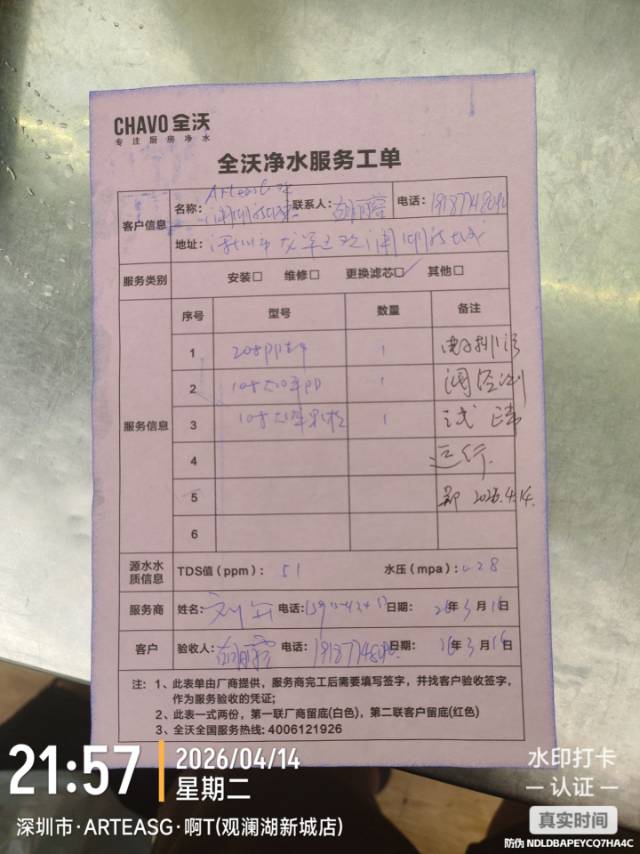 CHAVO 全沃
专注厨房净水
全沃净水服务工单
客户信息
名称: ArteasG 观澜湖新城 联系人: 电话:
地址: 深圳市龙华区观澜湖新城
服务类别 安装□ 维修□ 更换滤芯☑ 其他□
服务信息
序号 型号 数量 备注
1 20寸PP棉 1 电子排污
2 10寸 PP 1 阀经测
3 10寸 1 试 正常
4 运行.
5 2026.4.14.
6
源水水质信息 TDS值(ppm): 51 水压(mpa): 0.28
服务商 姓名: 电话: 日期: 26年3月16日
客户 验收人: 电话: 日期: 26年3月16日
注: 1、此表单由厂商提供，服务商完工后需要填写签字，并找客户验收签字，
作为服务验收的凭证;
2、此表一式两份，第一联厂商留底(白色)，第二联客户留底(红色)
3、全沃全国服务热线: 4006121926
21:57
2026/04/14
星期二
深圳市·ARTEASG·啊T(观澜湖新城店)
水印打卡
认证
真实时间
防伪 NDLDBAPEYCQ7HA4C